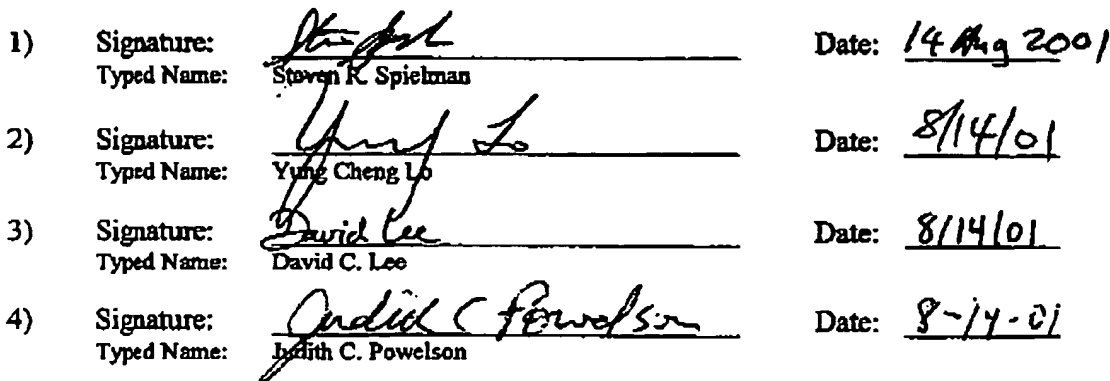 1) Signature: Date: 14 Aug 2001
Typed Name: Steven R. Spielman
2) Signature: Yung Lo Date: 8/14/01
Typed Name: Yung Cheng Lo
3) Signature: David Lee Date: 8/14/01
Typed Name: David C. Lee
4) Signature: Judith C Powelson Date: 8-14-01
Typed Name: Judith C. Powelson